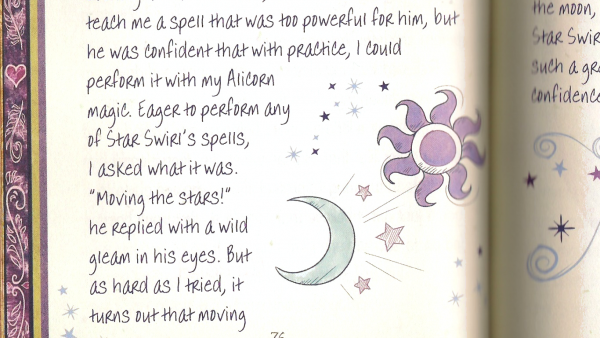 teach me a spell that was too powerful for him, but
he was confident that with practice, I could
perform it with my Alicorn
magic. Eager to perform any
of Star Swirl's spells,
I asked what it was.
"Moving the stars!"
he replied with a wild
gleam in his eyes. But
as hard as I tried, it
turns out that moving
the moon,
Star Swir
such a gr
confidence